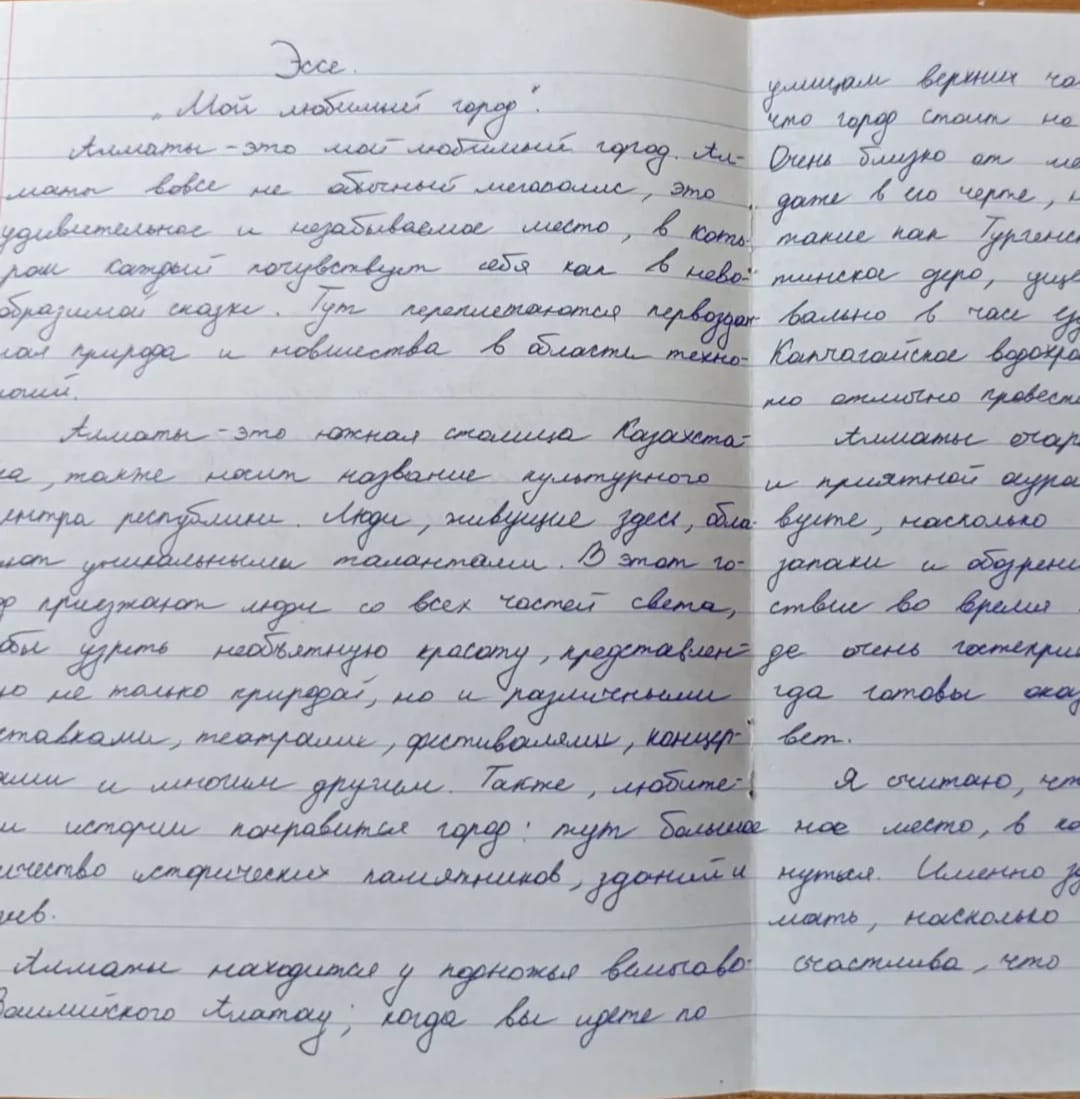 Эссе.
„Мой любимый город".
Алматы - это мой любимый город. Ал-
маты вовсе не обычный мегаполис, это
удивительное и незабываемое место, в кото-
ром каждый почувствует себя как в нево-
образимой сказке. Тут переплетаются первоздан
ная природа и новшества в области техно-
логий.
Алматы - это южная столица Казахста-
на, также носит название культурного
центра республики. Люди, живущие здесь, обла-
ают уникальными талантами. В этот го-
д приезжают люди со всех частей света,
обы узреть необъятную красоту, представлен-
ую не только природой, но и различными
ставками, театрами, фестивалями, концер-
ами и многим другим. Также, любите-
и истории понравится город: тут большое
ичество исторических памятников, зданий и
ев.
Алматы находится у подножья велича во-
Заилийского Алатау; когда вы идете по
улицам верхних ча
что город стоит на
Очень близко от ме
даже в его черте, н
такие как Тургенс
тинское озеро, уще
вально в часе езд
Капчагайское водохра
но отлично провест
Алматы очар
и приятной аура
вуете, насколько
запахи и обозрени
ствие во время
де очень гостеприи
гда готовы оказ
вет.
Я считаю, что
ное место, в ко
нуться. Именно зд
мать, насколько
счастлива, что